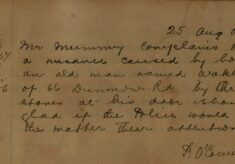 25 Aug
Mr Mummy Complains
a nuisance caused by bo
an old man named
of 66 Dunmow Rd by thr
stones at his door shou
glad if the Police would
the matter their attention
D. O'Conn